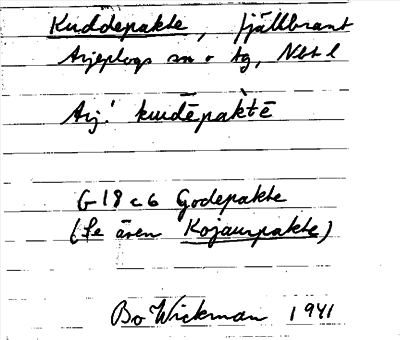 Kuddepakte, fjällbrant
Arjeplogs sn o tg, Nbt l
Arj! kuudēpàktē
G18 c 6 Godepakte
(Se även Kojaurpakte)
Bo Wickman 1941